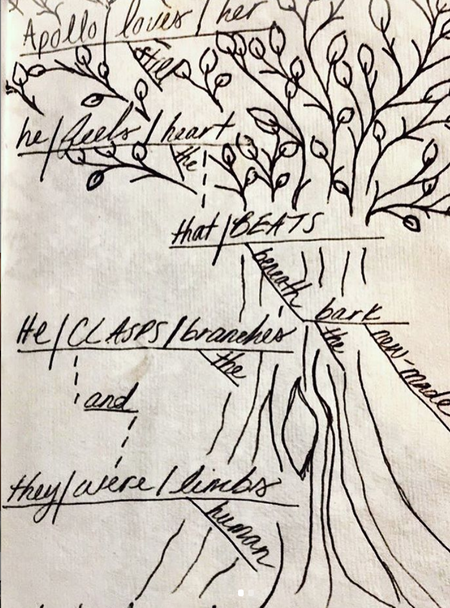 Apollo loves her
he feels heart
the
that BEATS
beneath
bark
the
new-made
He CLASPS branches
the
and
they were limbs
human